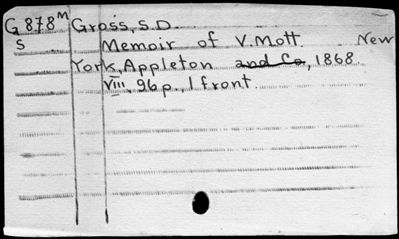 G 878ᴹ Gross, S.D.
S Memoir of V. Mott. New
York, Appleton and Co, 1868.
VIII, 96p. 1 front.